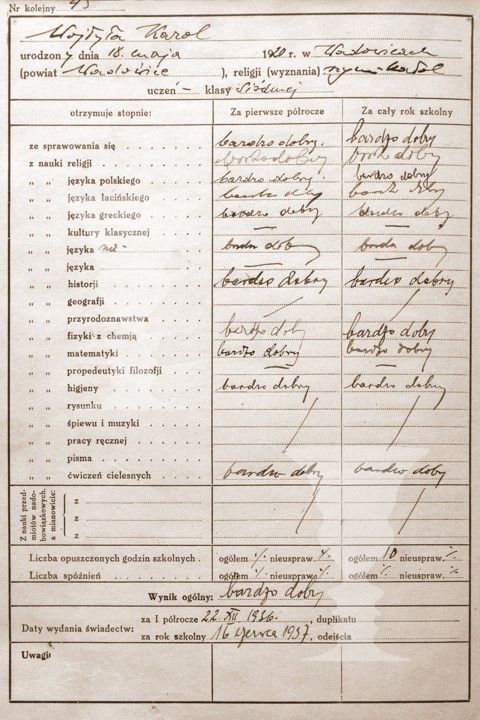 Nr kolejny 45
Wojtyła Karol
urodzony dnia 18. maja 1920 r. w Wadowicach
(powiat Wadowice ), religji (wyznania) rzym-katol
uczeń – klasy siódmej
otrzymuje stopnie: Za pierwsze półrocze Za cały rok szkolny
ze sprawowania się bardzo dobry. bardzo dobry
z nauki religji bardzo dobry bardz dobry
„ „ języka polskiego bardzo dobry. bardzo dobry
„ „ języka łacińskiego bardz dobry bardz dobry
„ „ języka greckiego bardzo dobry bardzo dobry
„ „ kultury klasycznej — —
„ „ języka niem. bardzo dobry bardzo dobry
„ „ języka — —
„ „ historji bardzo dobry bardzo dobry
„ „ geografji
„ „ przyrodoznawstwa
„ „ fizyki z chemją bardzo dobry bardzo dobry
„ „ matematyki bardzo dobry bardzo dobry
„ „ propedeutyki filozofji — —
„ „ higjeny bardzo dobry bardzo dobry
„ „ rysunku
„ „ śpiewu i muzyki
„ „ pracy ręcznej
„ „ pisma
„ „ ćwiczeń cielesnych bardzo dobry bardzo dobry
Z nauki przedmiotów nadobowiązkowych, a mianowicie:
z
z
z
Liczba opuszczonych godzin szkolnych ogółem ·/. nieuspraw. ·/. ogółem 10 nieuspraw. ·/.
Liczba spóźnień ogółem ·/. nieuspraw. ·/. ogółem ·/. nieuspraw. ·/.
Wynik ogólny: bardzo dobry
Daty wydania świadectw: za I półrocze 22. XII 1936., duplikatu
za rok szkolny 16 czerwca 1937, odejścia
Uwagi: